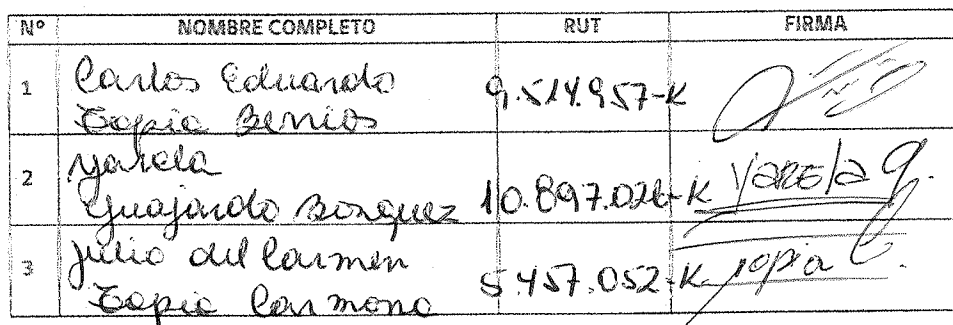 Nº NOMBRE COMPLETO RUT FIRMA
1 Carlos Eduardo
Tapia Berrios 9.514.957-K
2 Yarela
Guajardo Bosquez 10.897.026-K Yarela G.
3 Julio del Carmen
Tapia Carmona 5.457.052-K Tapia